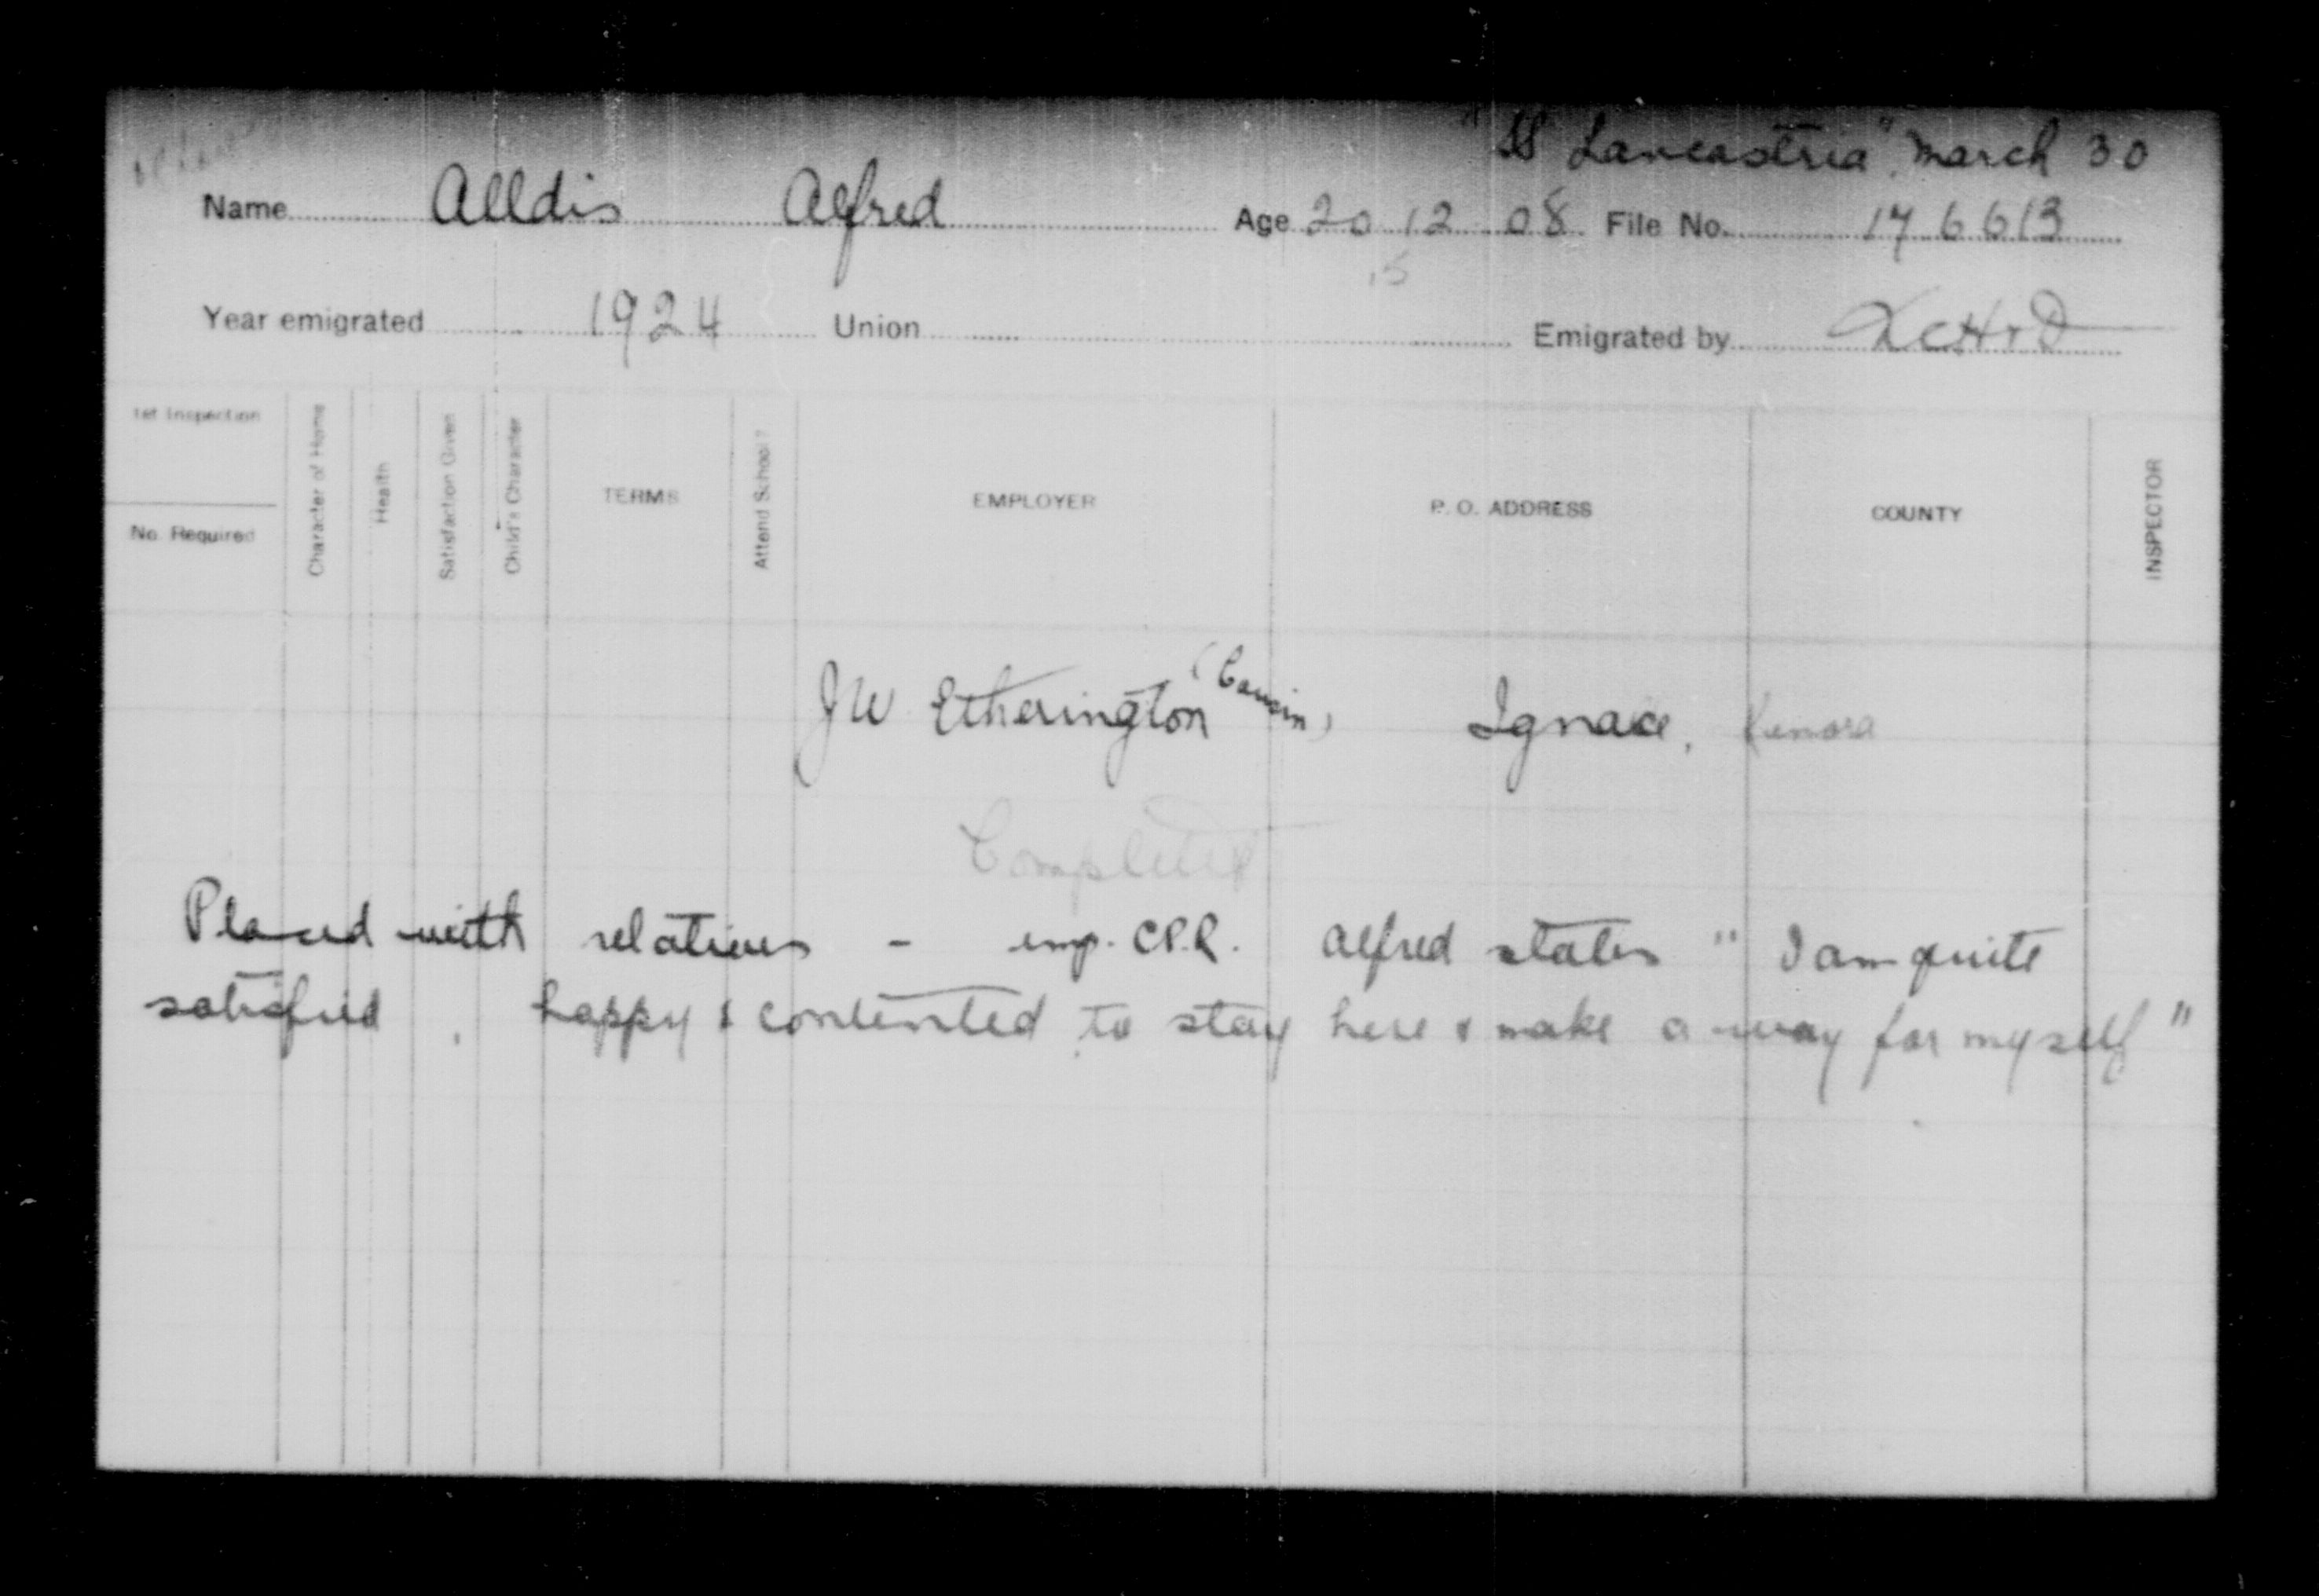 "SS Lancastria". March 30
Name Alldis Alfred Age 20 12 08 File No. 176613
15
Year emigrated 1924 Union Emigrated by
1st Inspection
No. Required
Character of Home
Health
Satisfaction Given
Child's Character
TERMS
Attend School?
EMPLOYER
P. O. ADDRESS
COUNTY
INSPECTOR
JW Etherington (Cousin) Ignace, Kenora
Completed
Placed with relatives - emp. C.P.R. Alfred states "I am quite
satisfied, happy & contented to stay here & make a way for myself"